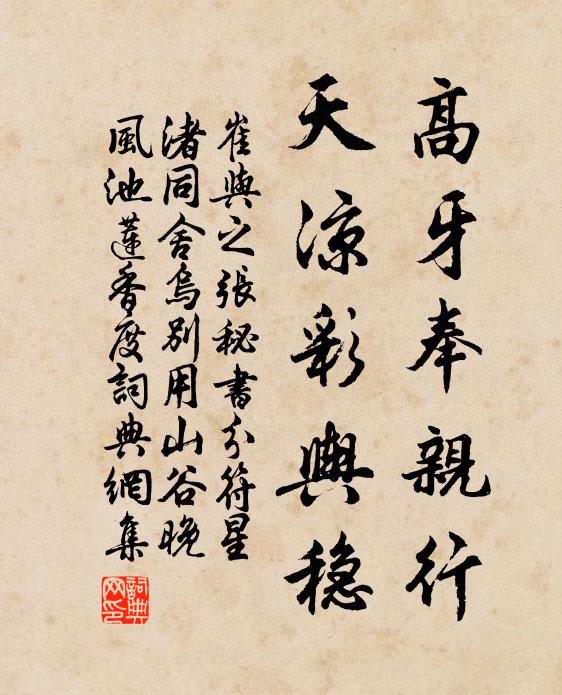 高牙奉親行
天凉彩輿穏
崔與之張秘書分符星
渚同舍烏别用山谷晚
風池蓮香度詞典網集
詞典网印